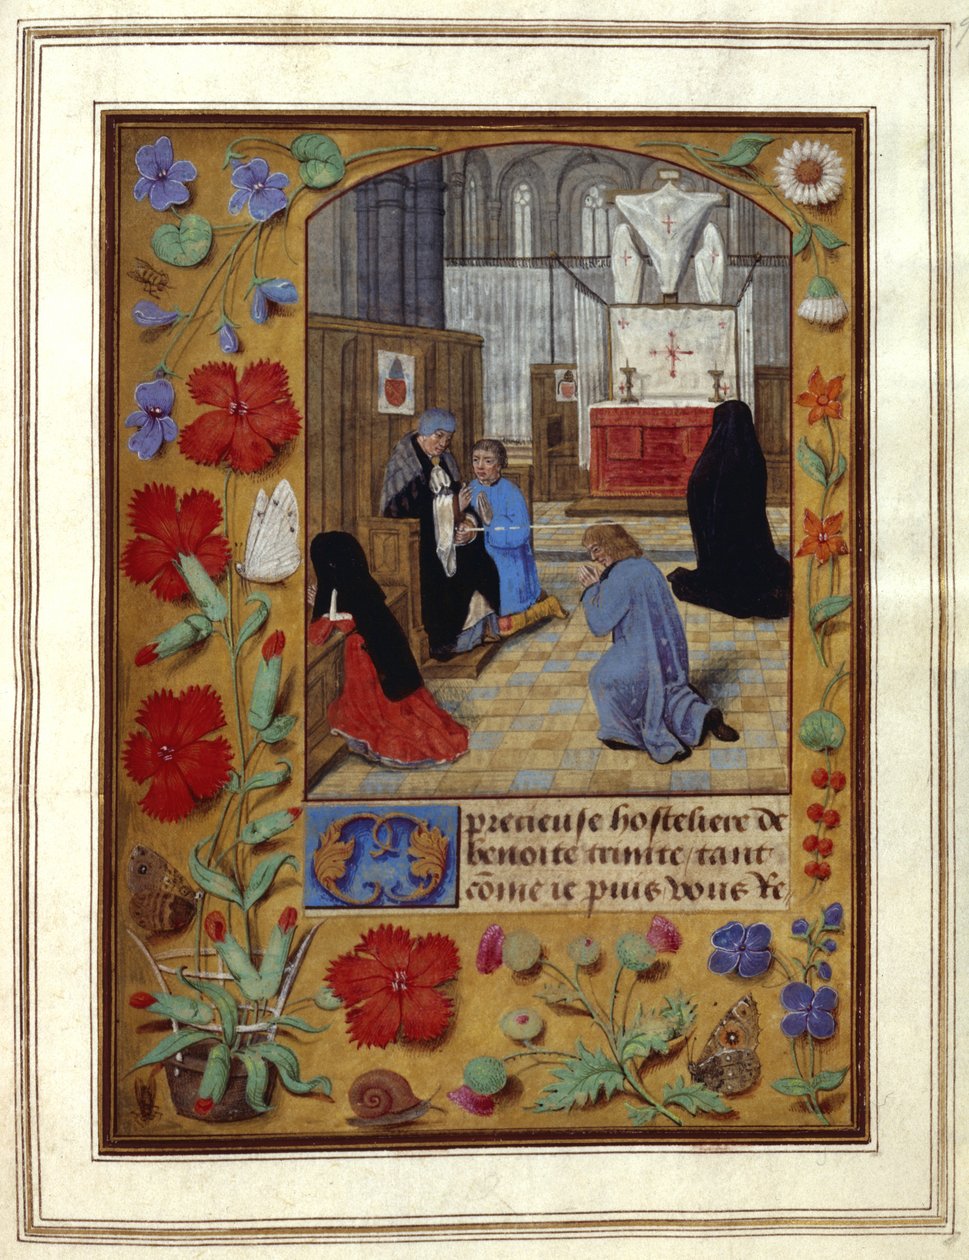 precieuse hosteliere de
benoite trinite / tant
cõme ie puis vous Re